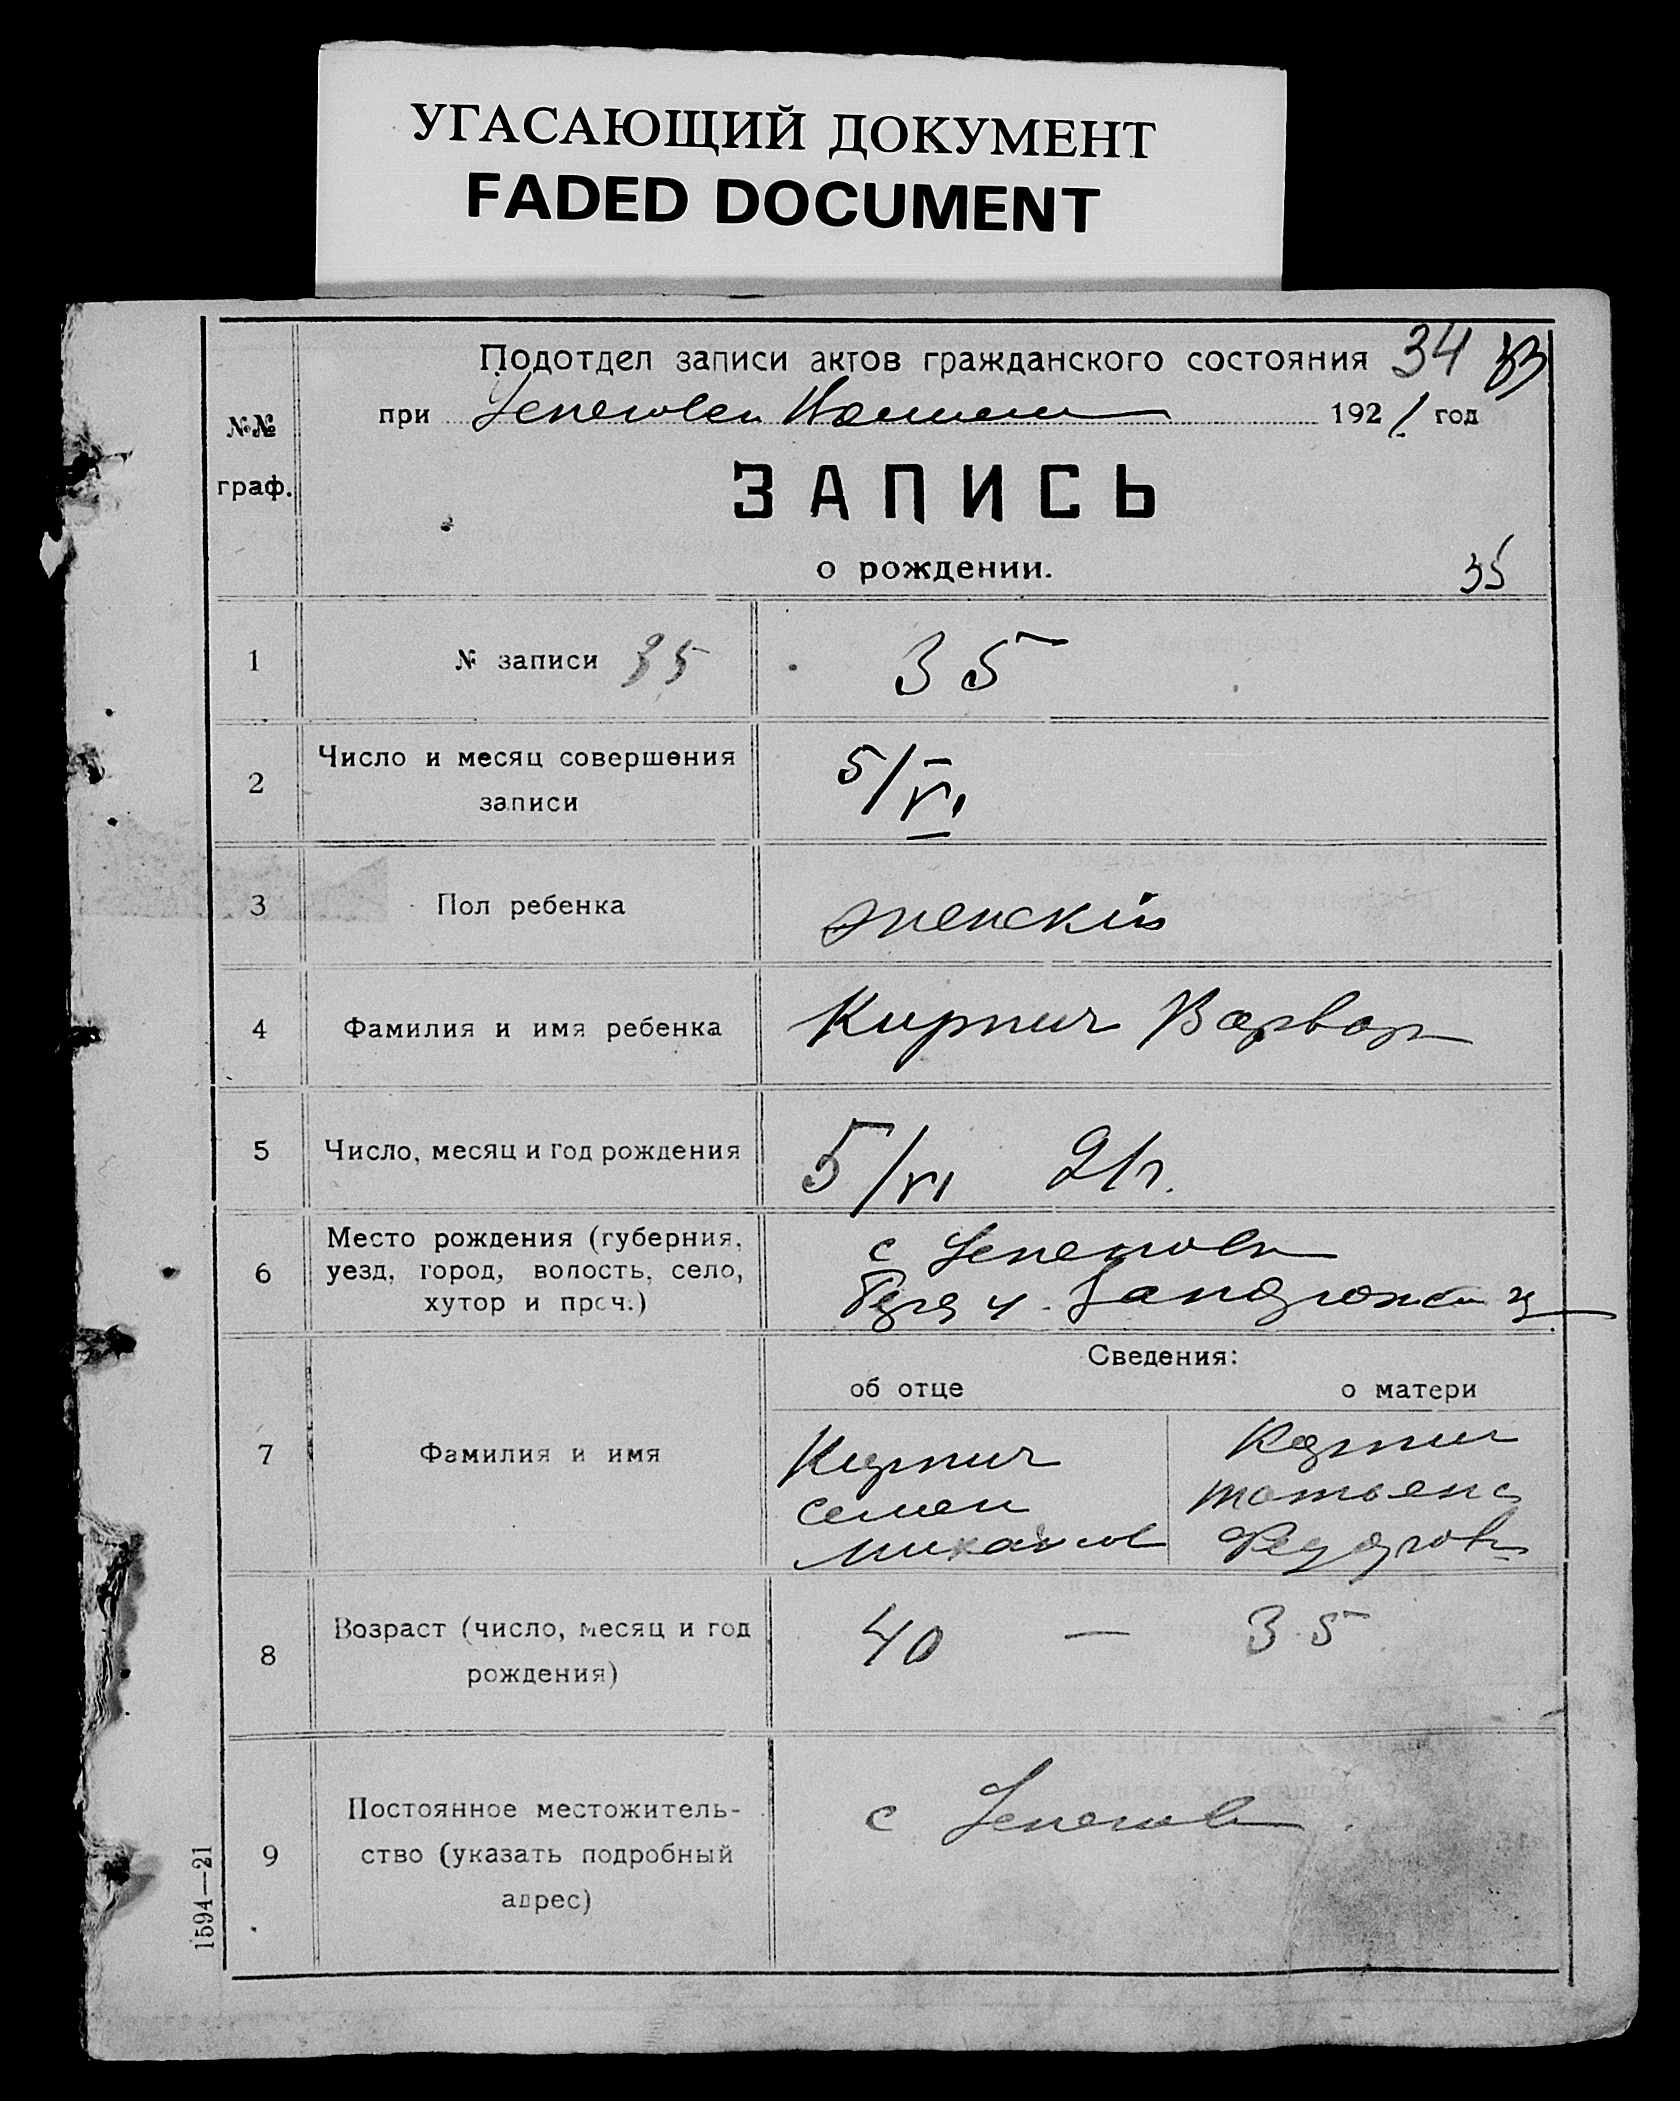 УГАСАЮЩИЙ ДОКУМЕНТ
FADED DOCUMENT
Подотдел записи актов гражданского состояния 34 33
при 1921 год
№№
граф.
ЗАПИСЬ
о рождении.
35
1 № записи 35 35
2 Число и месяц совершения
записи
5/VI
3 Пол ребенка женскій
4 Фамилия и имя ребенка Кирпич Варвар
5 Число, месяц и год рождения 5/VI 21г.
6 Место рождения (губерния,
уезд, город, волость, село,
хутор и проч.)
с
Сведения:
об отце о матери
7 Фамилия и имя
Кирпич
семен
михайлов
Кирпич
татьяна
Федоров
8 Возраст (число, месяц и год
рождения)
40 — 35
9 Постоянное местожитель-
ство (указать подробный
адрес)
с
1594—21